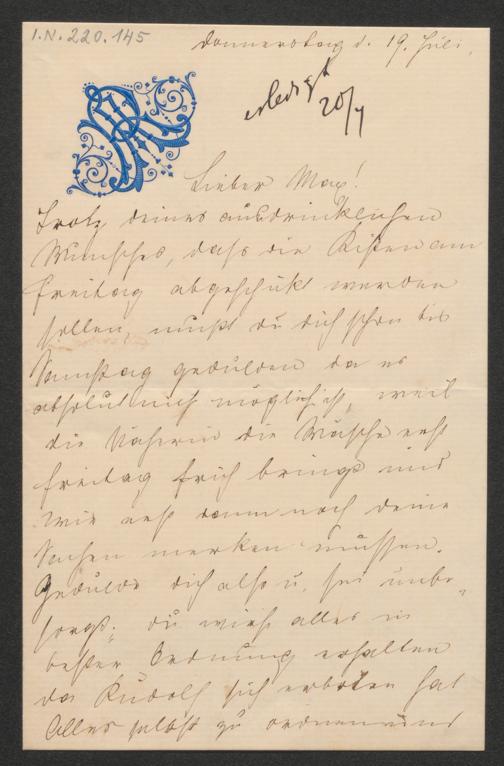 I.N. 220.145
Donnerstag d. 19. Juli.
erledigt
20/7
Lieber Max!
Trotz deines ausdrücklichen
Wunsches, dass die Kisten am
Freitag abgeschikt werden
sollen, musst du dich schon bis
Samstag gedulden da es
absolut nicht möglich ist, weil
die Näherin die Wäsche erst
Freitag früh bringt und
wir erst dann noch deine
Sachen merken müssen.
Gedulde dich also u. sei unbe-
sorgt; du wirst alles in
bester Ordnung erhalten
da Rudolf sich erboten hat
Alles selbst zu ordnen und